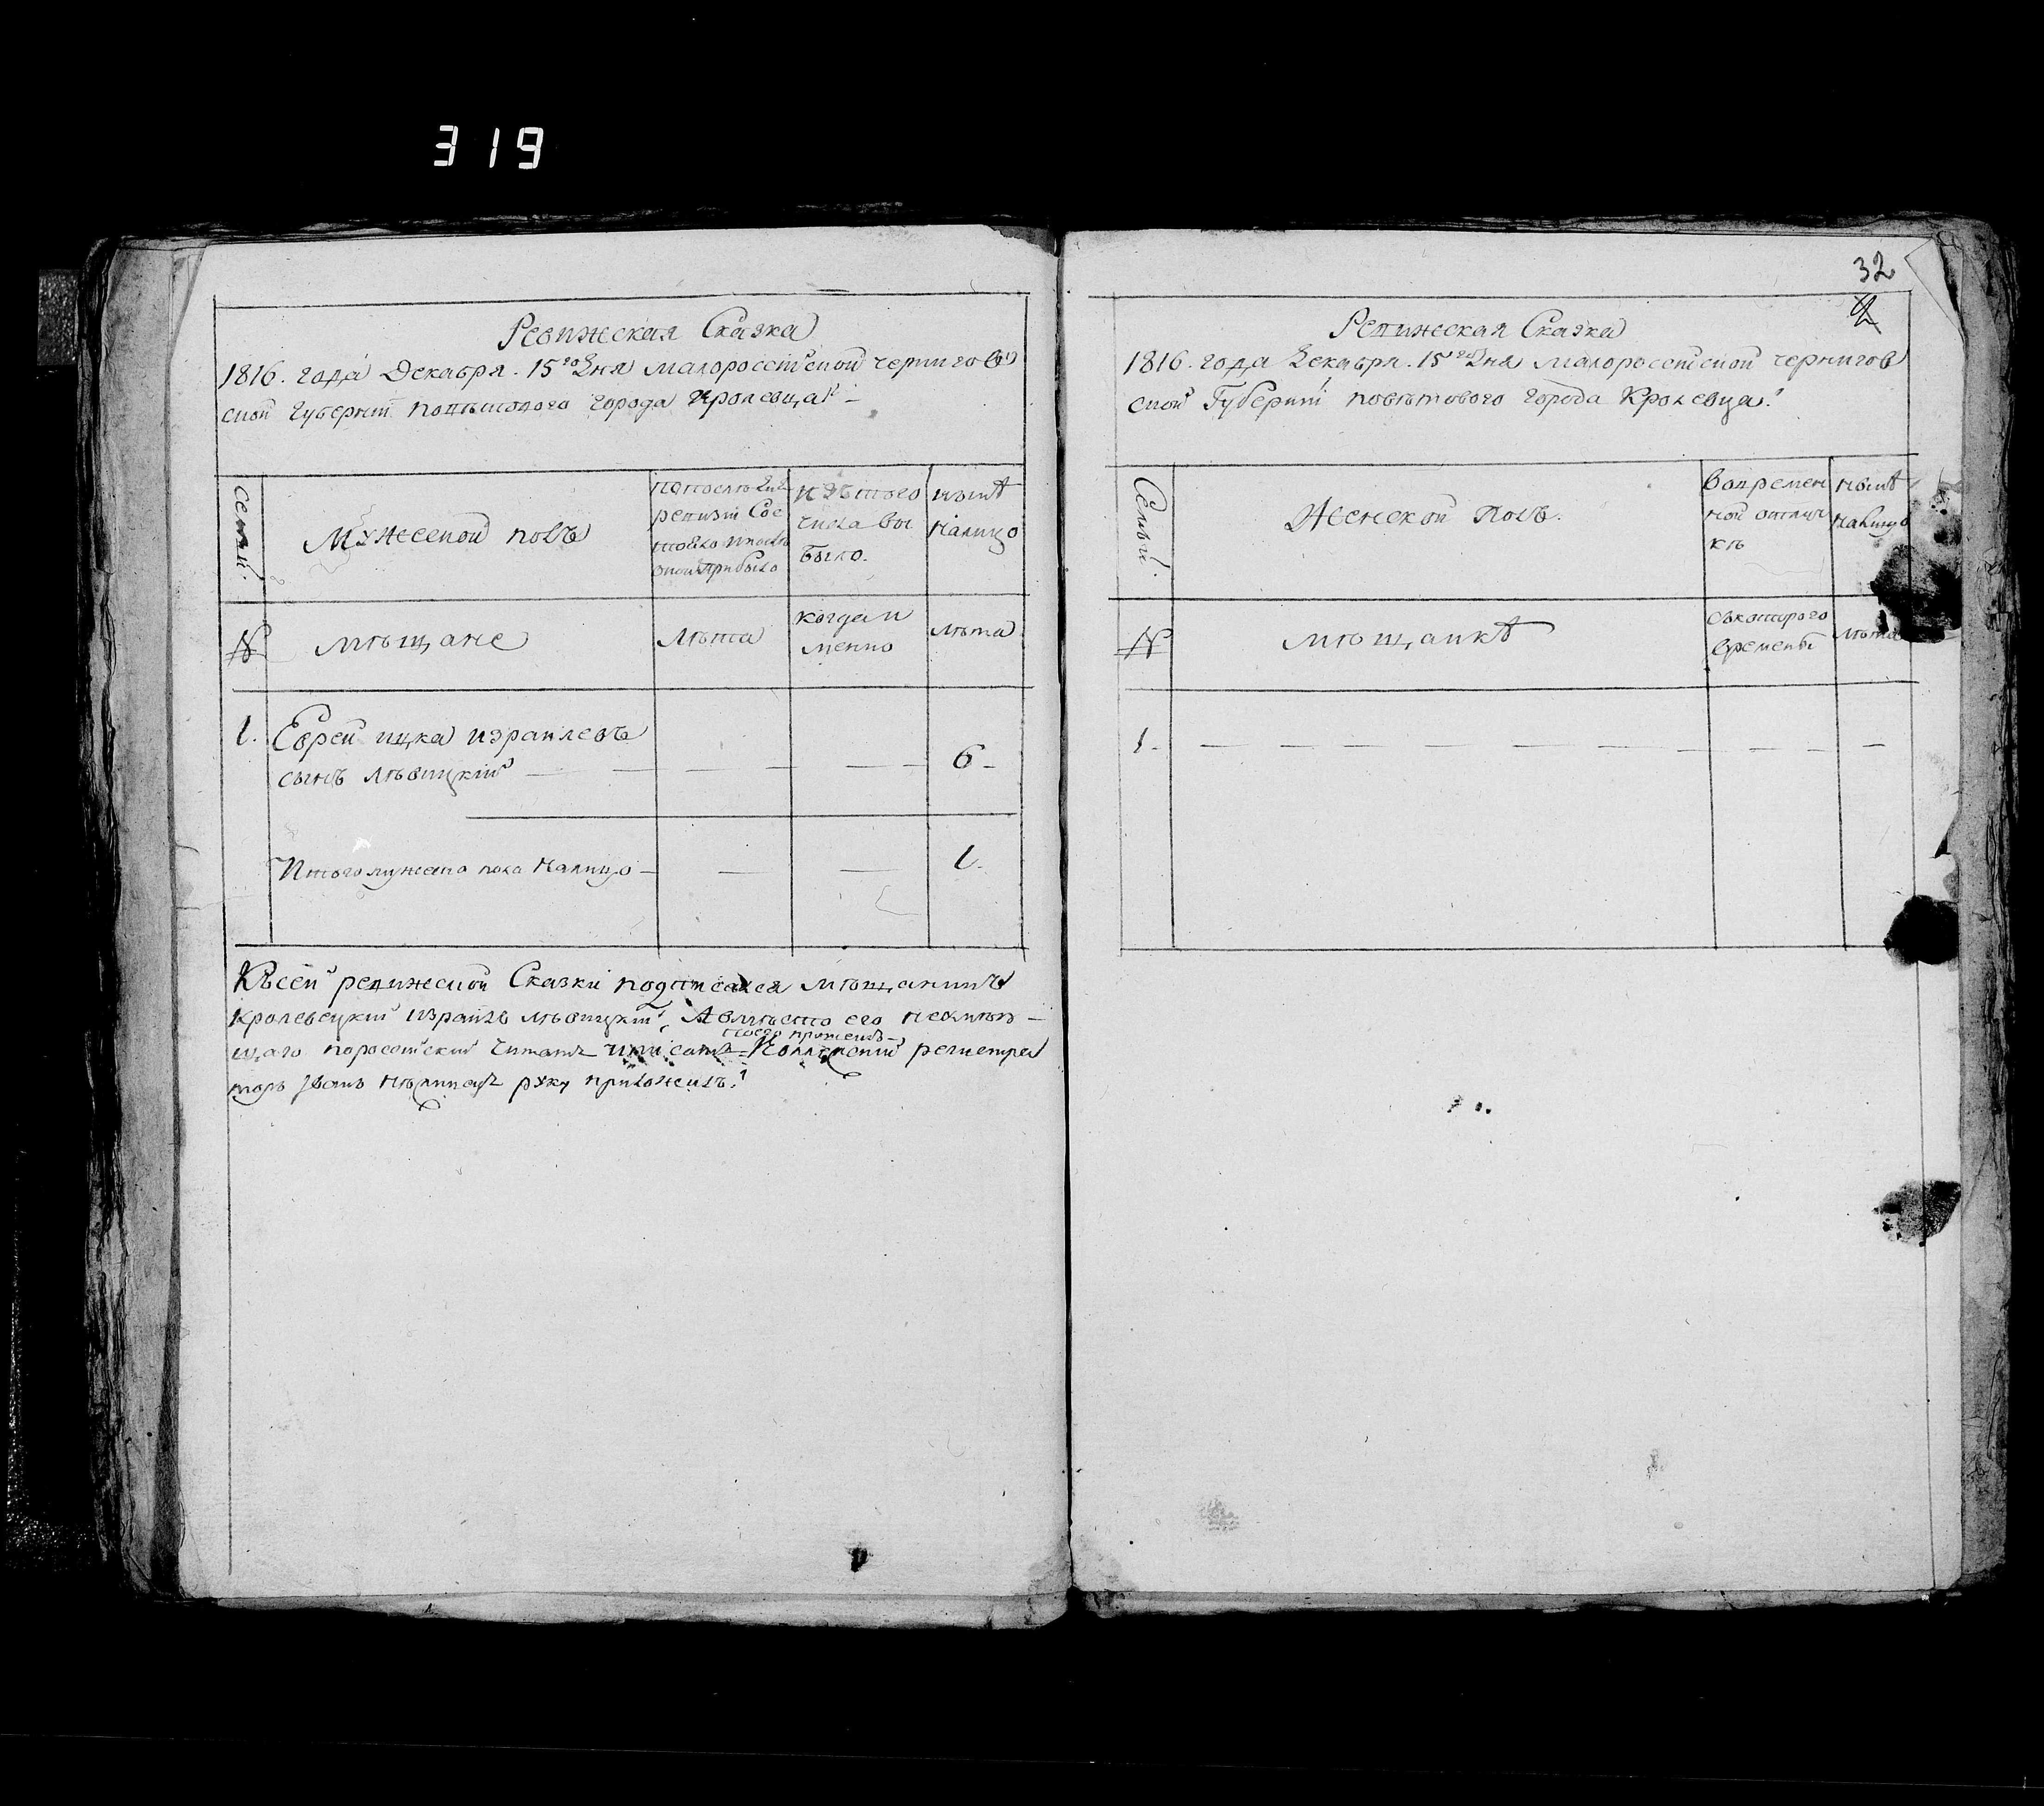 319
Ревижская Сказка
1816. года Декабря. 15го Дня малороссійской чернигов
ской губерніи повѣтового города Кролевца
Семьи.
Мужеской полъ
по последней
ревизіи Сос
тояло и после
оной прибыло
изъ того
числа вы
было.
нынѣ
налицо
№
мѣщане
Лѣта
когда и
менно
лѣта
1.
Еврей ицка израилевъ
сынъ лѣвицкій
6
Итого мужеска пола налицо
1.
Къ сей ревижской Сказки подписался мѣщанинъ
кролевецкій израиль лѣвицкій, А вмѣсто его неумѣю
того прошению
щаго пороссійски читать и писать Коллежский регистра
торъ Иванъ руку приложилъ.
32
2
Ревижская Сказка
1816. года Декабря. 15го Дня малороссійской чернигов
ской Губерніи повѣтового города Кролевца.
Семьи.
Женской полъ.
Во времен
ной отлуч
кѣ
нынѣ
налицо
№
мѣщанкѣ
съ которого
времены
лѣта
1.